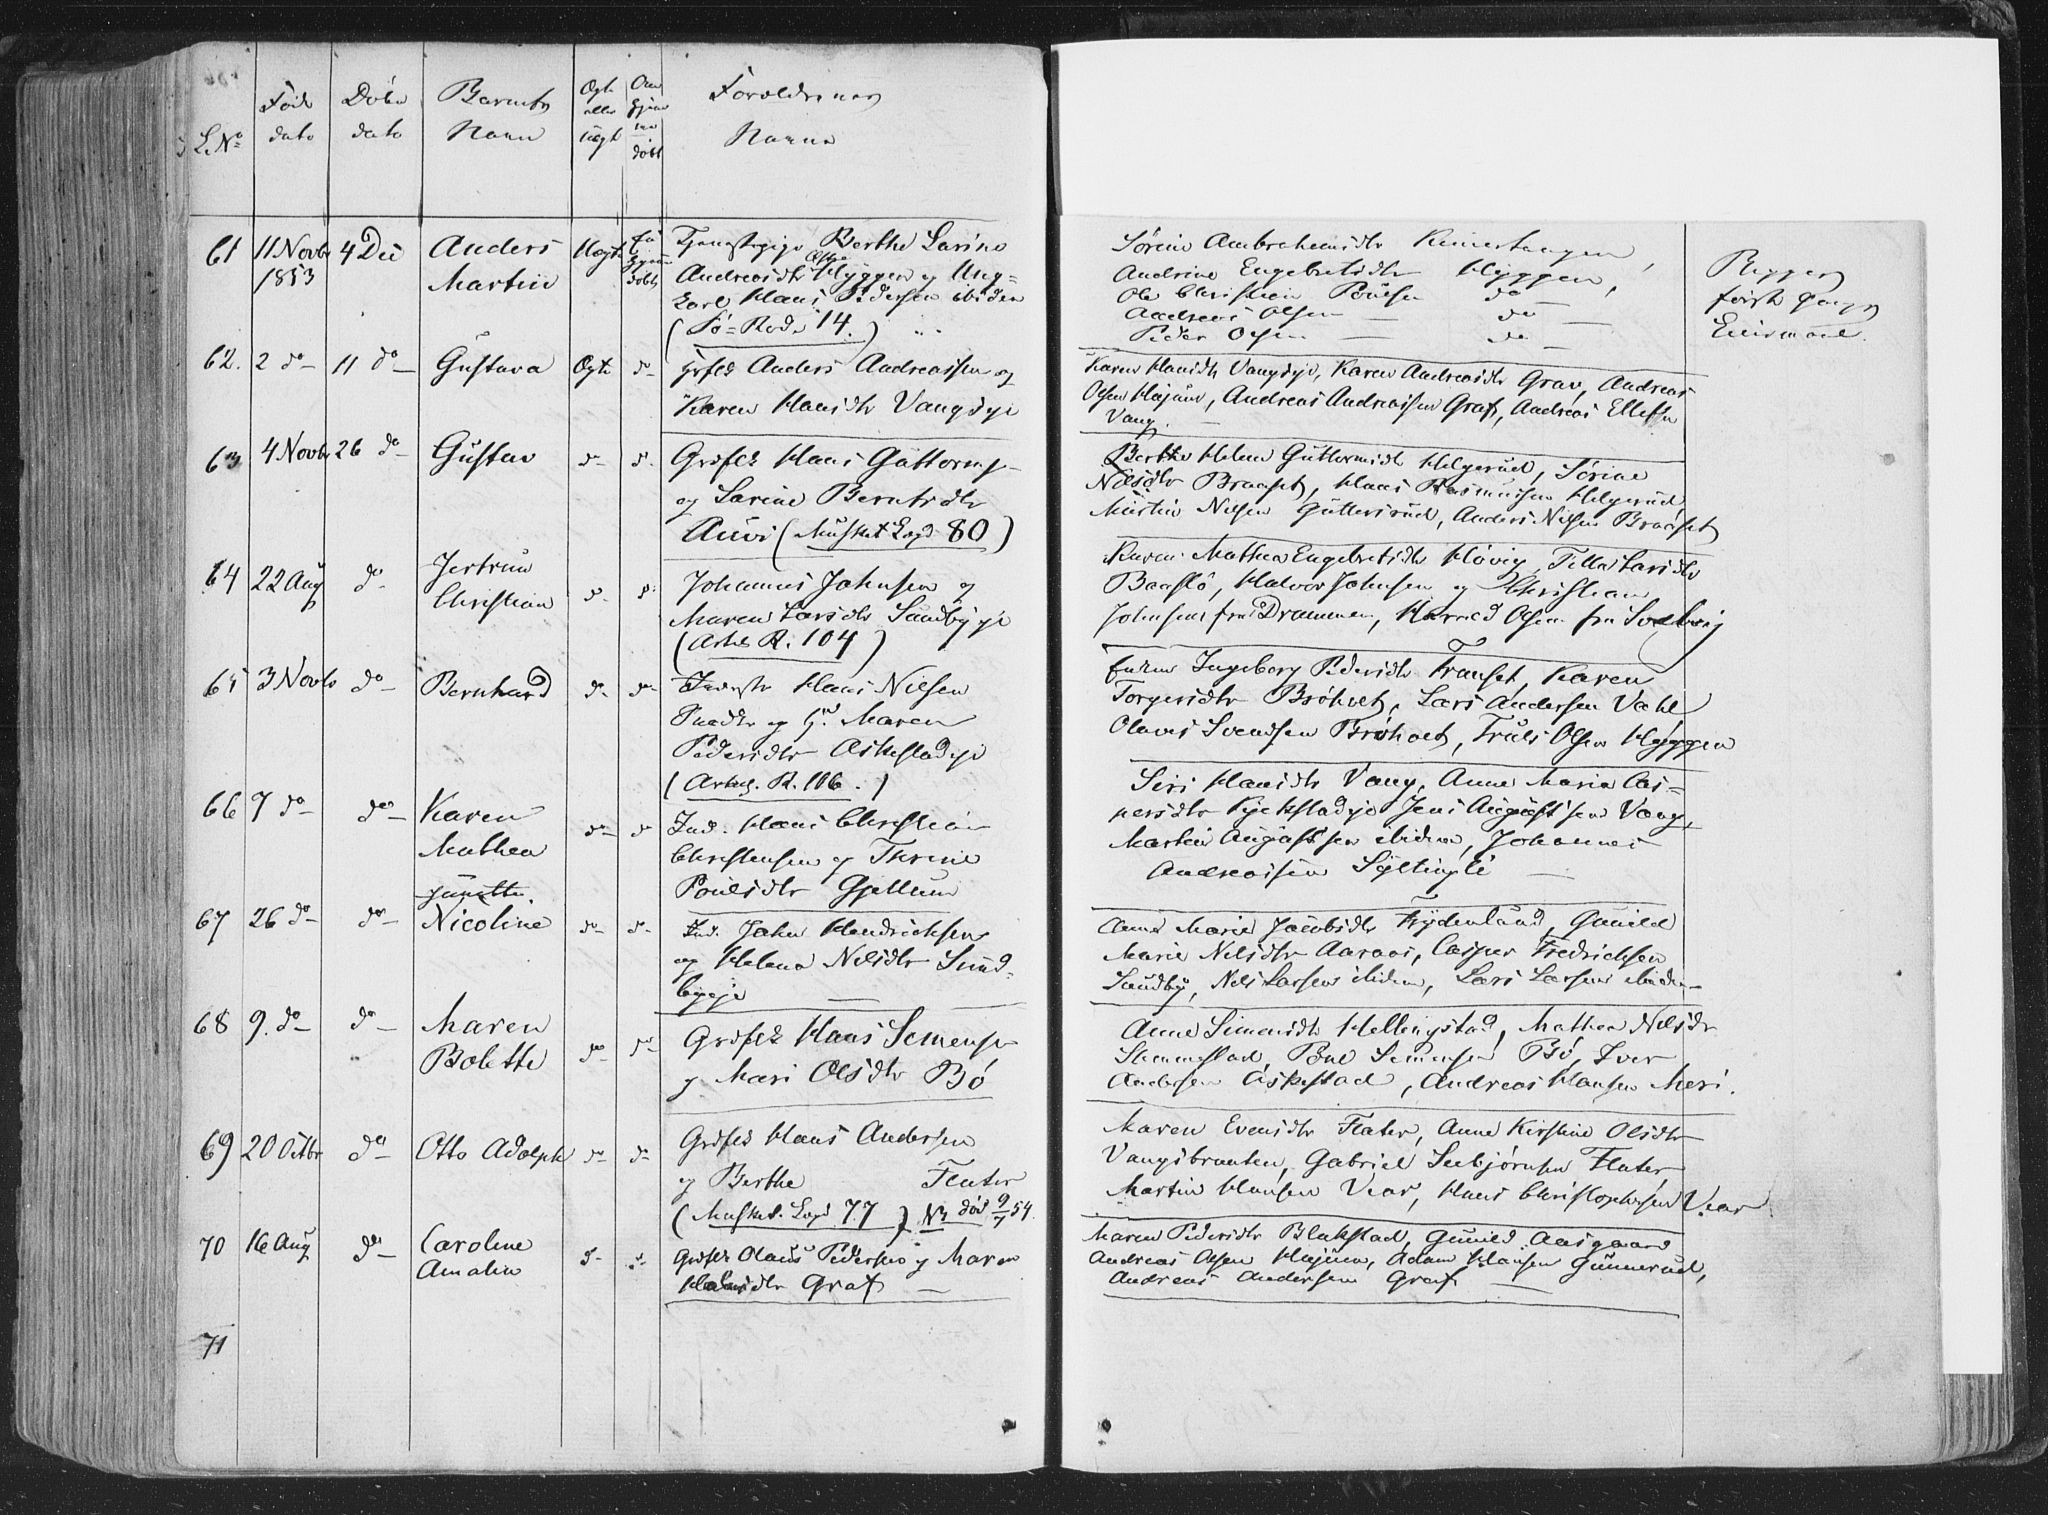 L. No
Født dato
Døbe dato
Barnets Navn
Ægte eller uægte
Om hjemmedøbt
Forældrenes Navne
61 11 Novbr 1853 4 Dec Anders Martin Uægte
Berthe Larine
Andreasdtr Hyggen og Ung-
karl Hans Pedersen ibidem
(Sø-Rode 14.)
Sørine Ambrahamsdtr
Andrine Engebretsdtr Hyggen,
Ole Christian Poulsen do —
Andreas Olsen — do —
Peder Olsen — do —
Begges
første Gangs
Leiermaal.
62. 2 do — 11 do — Gustava Ægte d–
Grfolk Anders Andreassen og
Karen Hansdtr Vangeje
Karen Hansdtr Vangeje, Karen Andreasdtr Grav, Andreas
Olsen Hajum, Andreas Andreassen Graf, Andreas Ellefsen
Vang. —
63 4 Novbr 26 do — Gustav d– d.
Grdfolk Hans Guttorms.
og Larine Berntsdtr
Auvi (Musket Lægd 80)
Berthe Helene Guttormsdtr Helgerud, Sørine
Nilsdtr Braaset, Hans Rasmussen Helgerud,
Martin Nilsen Guttersrud, Anders Nilsen Braaset
64 22 Aug do Jertrun Christian d. d.
Johannes Johnsen og
Maren Larsdtr Sundbyeje
(Arbs R. 104)
Karen Mathea Engebretsdtr Høvig, Larsdtr
Baaslø, Halvor Johnsen og Christian
Johnsen fra Drammen, Harald Olsen fra Solberg
65 3 Novbr do — Bernhard d– d–
Inderst Hans Nilsen
og H. Maren
Pedersdtr Askestadeje
(Arbeds. R. 106.)
Ingeborg Pedersdtr Transet, Karen
Torgersdtr Brøholt, Lars Andersen Vahl
Olaves Svendsen Brøholt, Truls Olsen Hyggen
66 7 do do — Karen Mathea d– d
Ind. Hans Christian
Christensen og Thrine
Poulsdtr Gjellum
Siri Hansdtr Vang, Anne Maria Cas-
persdtr Kjekstadeje Jens Augustsen Vang,
Martin Augustsen ibidem, Johannes
Andreassen Syltingli —
67 26 do — do — Nicoline d– d–
Ind. John Hendricksen
og Helene Nilsdtr Sund-
byeje —
Anne Marie Jacobsdtr Frydenlund, Gunild
Marie Nilsdtr Aaraas, Casper Fredricksen
Sundby, Nils Larsen ibidem, Lars Larsen ibidem —
68 9. do — do — Maren Bolette d– d–
Grdfolk Hans Semens.
og Mari Olsdtr Bø
Anne Simensdtr Hellingstad, Mathea Nilsdtr
Stemmestad, Poul Simensen Bø, Iver
Andersen Askestad, Andreas Hansen Meri.
69 20 Octbr do — Otto Adolph d– d–
Grdfolk Hans Andersen
og Berthe Flater
(Musket. Lægd 77) NB død 9/7 54.
Maren Evensdtr Flater, Anne Kirstine Olsdtr
Vangsbraaten, Gabriel Seebjørnsen Flater
Martin Hansen Vear, Hans Christophersen Vear
70 16 Aug do — Caroline Amalia d– d–
Grdfolk Olaus Pedersen og Maren
Hansdtr Graf —
Maren Pedersdtr Blakstad, Gunild Aasgaard
Andreas Olsen Hajum, Adam Hansen Gunnerud,
Andreas Andersen Graf —
71